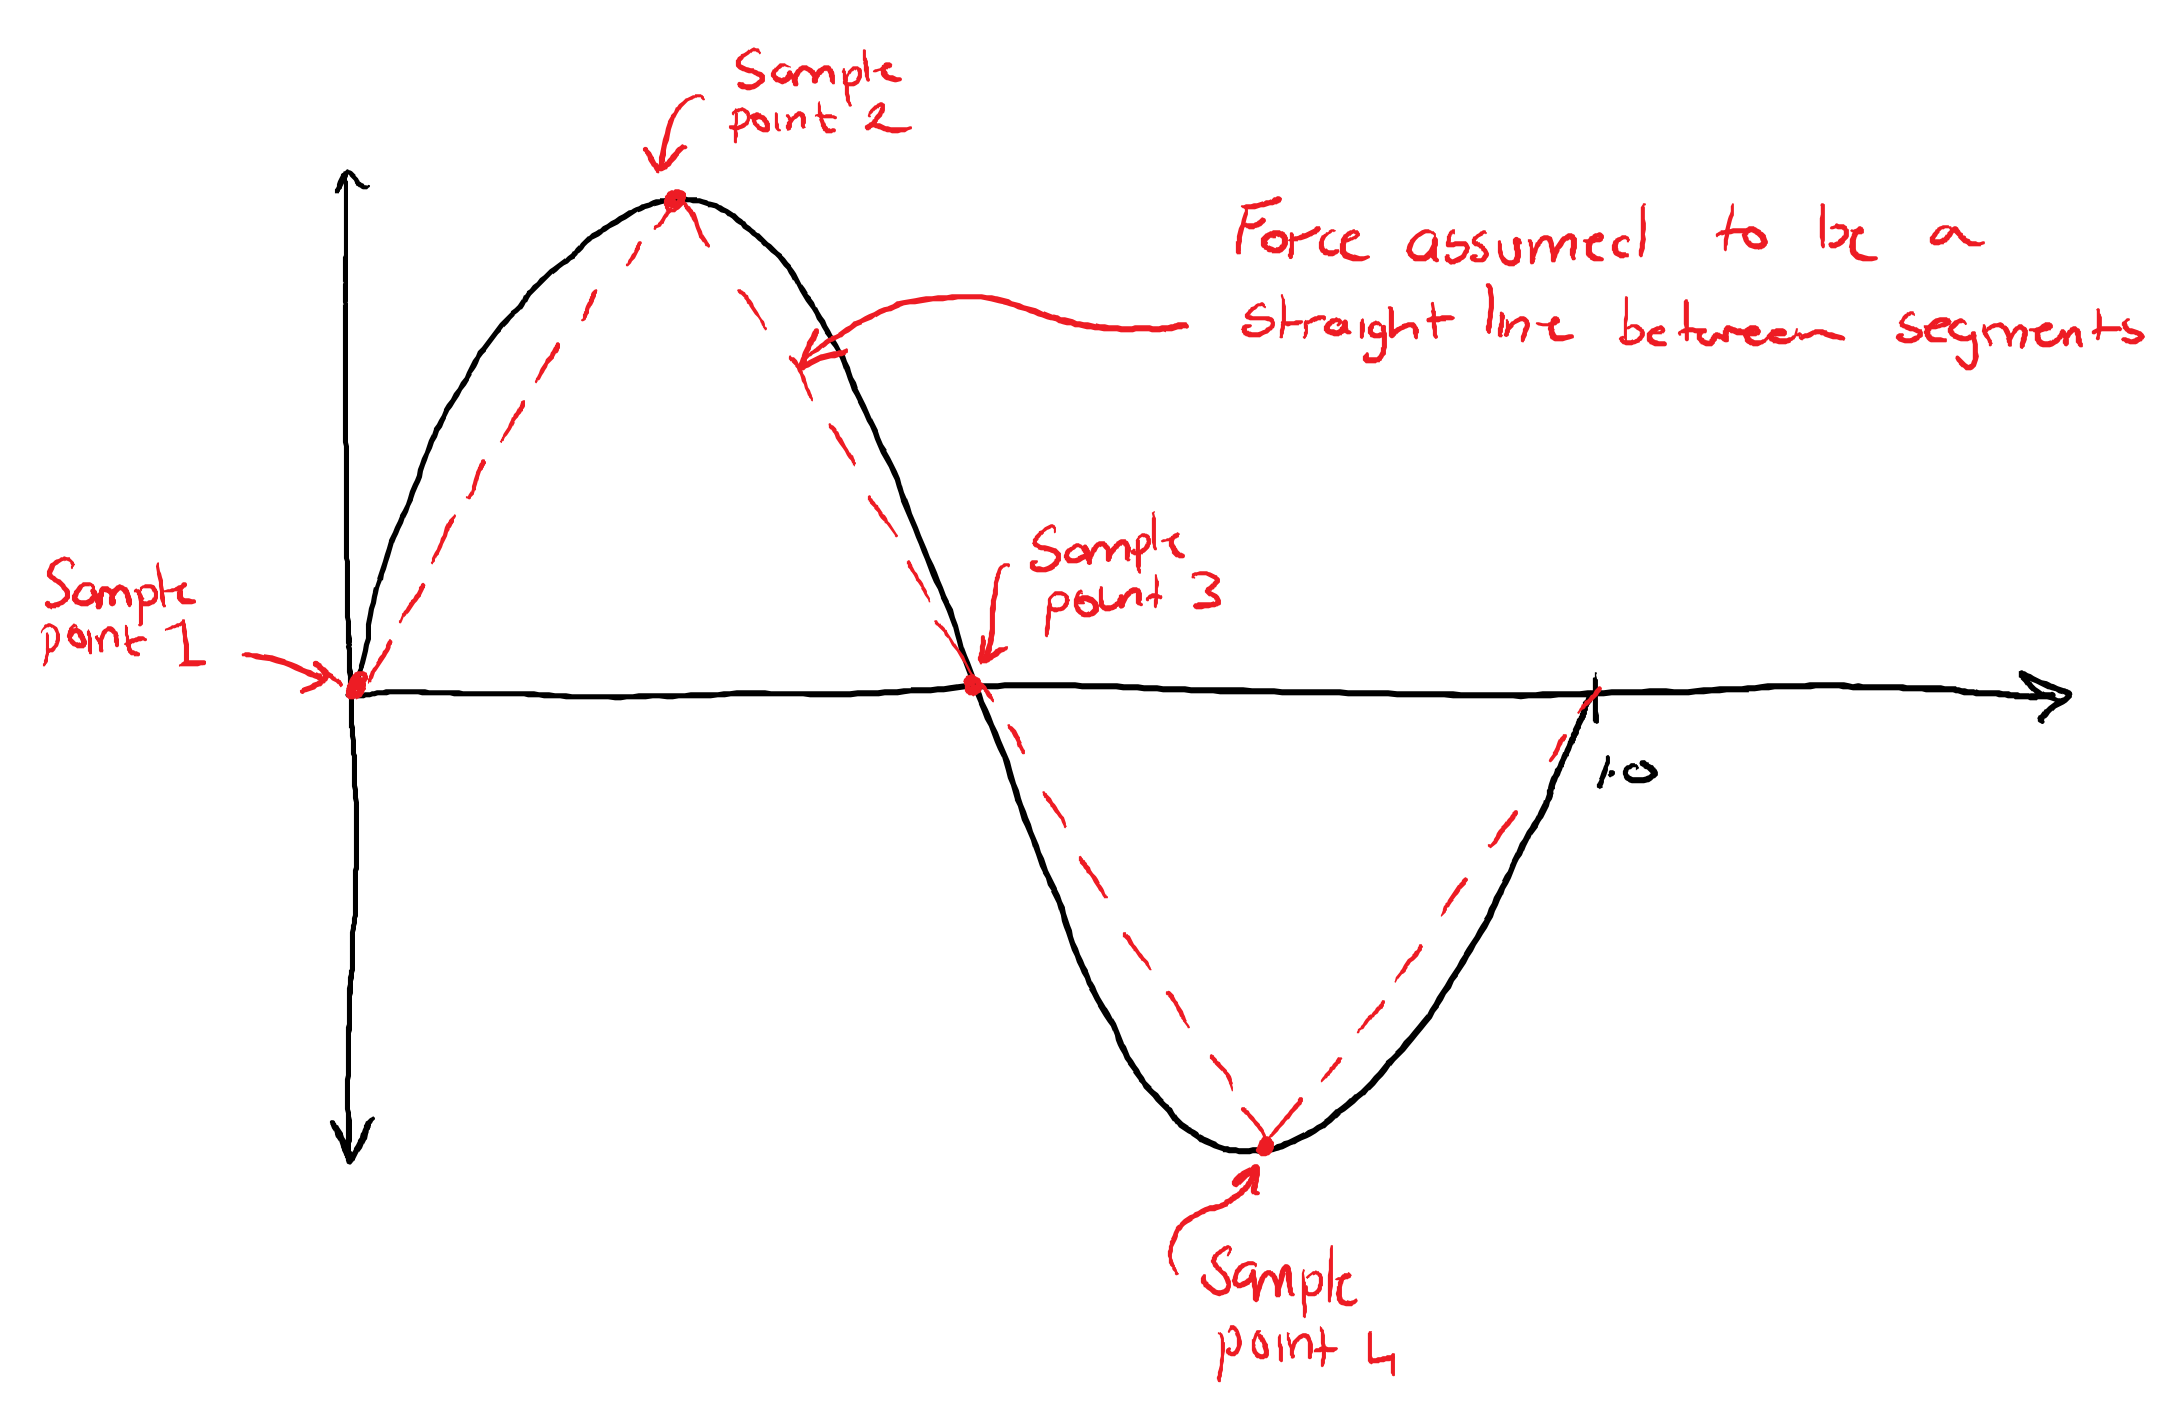 Sample
point 2
Force assumed to be a
straight line between segments
Sample
point 3
Sample
point 1
1.0
Sample
point 4